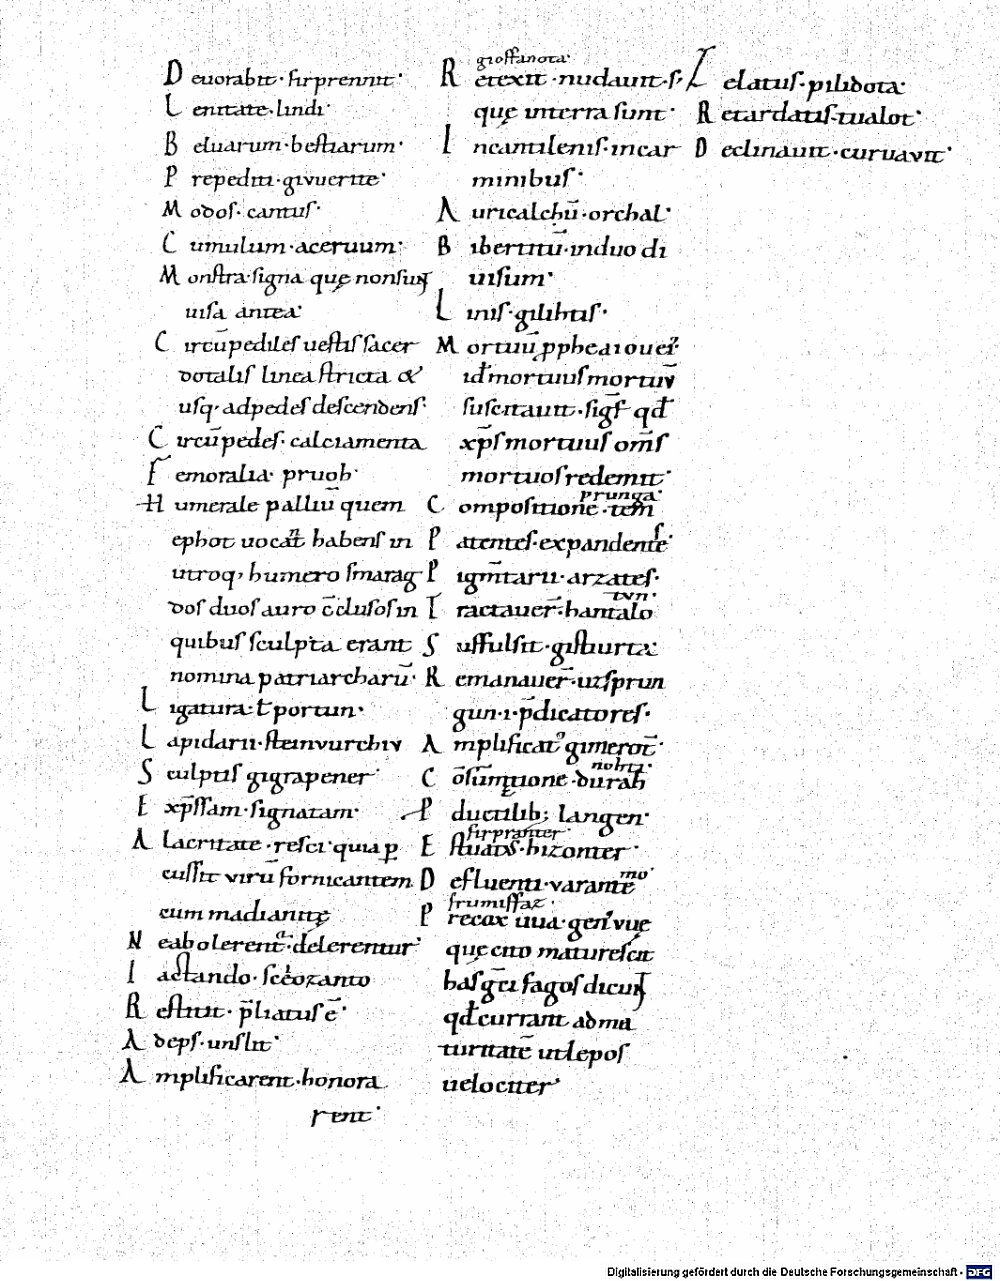 Deuorabit· firprennit·
Lenitate· lindi·
Beluarum· bestiarum·
Prepediti· givuerite·
Modos· cantus·
Cumulum· aceruum·
Monstra· signa quę nonsunt
uisa antea·
Circūpediles uestis sacer
dotalis linea stricta &
usq· adpedes descendens·
Circūpedes· calciamenta
Femoralia· pruoh·
Humerale palliū quem
ephot uocant habens in
utroq, humero smarag
dos duos auro c̄clusos in
quibus sculpta erant
nomina patriarcharū·
Ligatura· ł portun·
Lapidarii· steinvurchiv
Sculptis gigrapener·
Exp̄ssam· signatam·
Alacritate· resci· quia ꝑ
cussit virū fornicantem
cum madianitę
Neabolerent· delerentur·
Iactando· scēozanto
Restitit· p̄liatus ē·
Adeps· unslit·
Amplificarent· honora
rent·
gioffanota·
Retexit· nudauit· s·
quę interra sunt·
Incantilenis· incar
minibus·
Auricalchū· orchal·
Bibertitū· induo di
uisum·
Linis· gilihtis·
Mortuū ꝓphea iouer̄
id̄ mortuus mortuū
suscitauit· sigf̄ qd̄
xp̄s mortuus om̄s
mortuos redemit·
prunga·
Compositione· tem̄
Patentes· expandentes·
Pigm̄tarii· arzates·
tvn·
Tractauer̄· hantalo
Suffulsit· gistiurta·
Remanauer̄· uzsprun
gun· i· p̄dicatores·
Amplificat᷒ gimerot̄·
nohtı·
Cōsūmtione· durah
Pductilib; langen·
firpranter·
Estuatis· hizonter·
Defluenti· varante mo·
frumissaz·
Precox uua· gen᷒ vuę
quę cito maturescit
has gr̄ci fagos dicunt
qd̄ currant adma
turitatē utlepos
uelociter·
Zelatus· pilidota·
Retardatis· tualot·
Declinauit· curuavit·
Digitalisierung gefördert durch die Deutsche Forschungsgemeinschaft - DFG